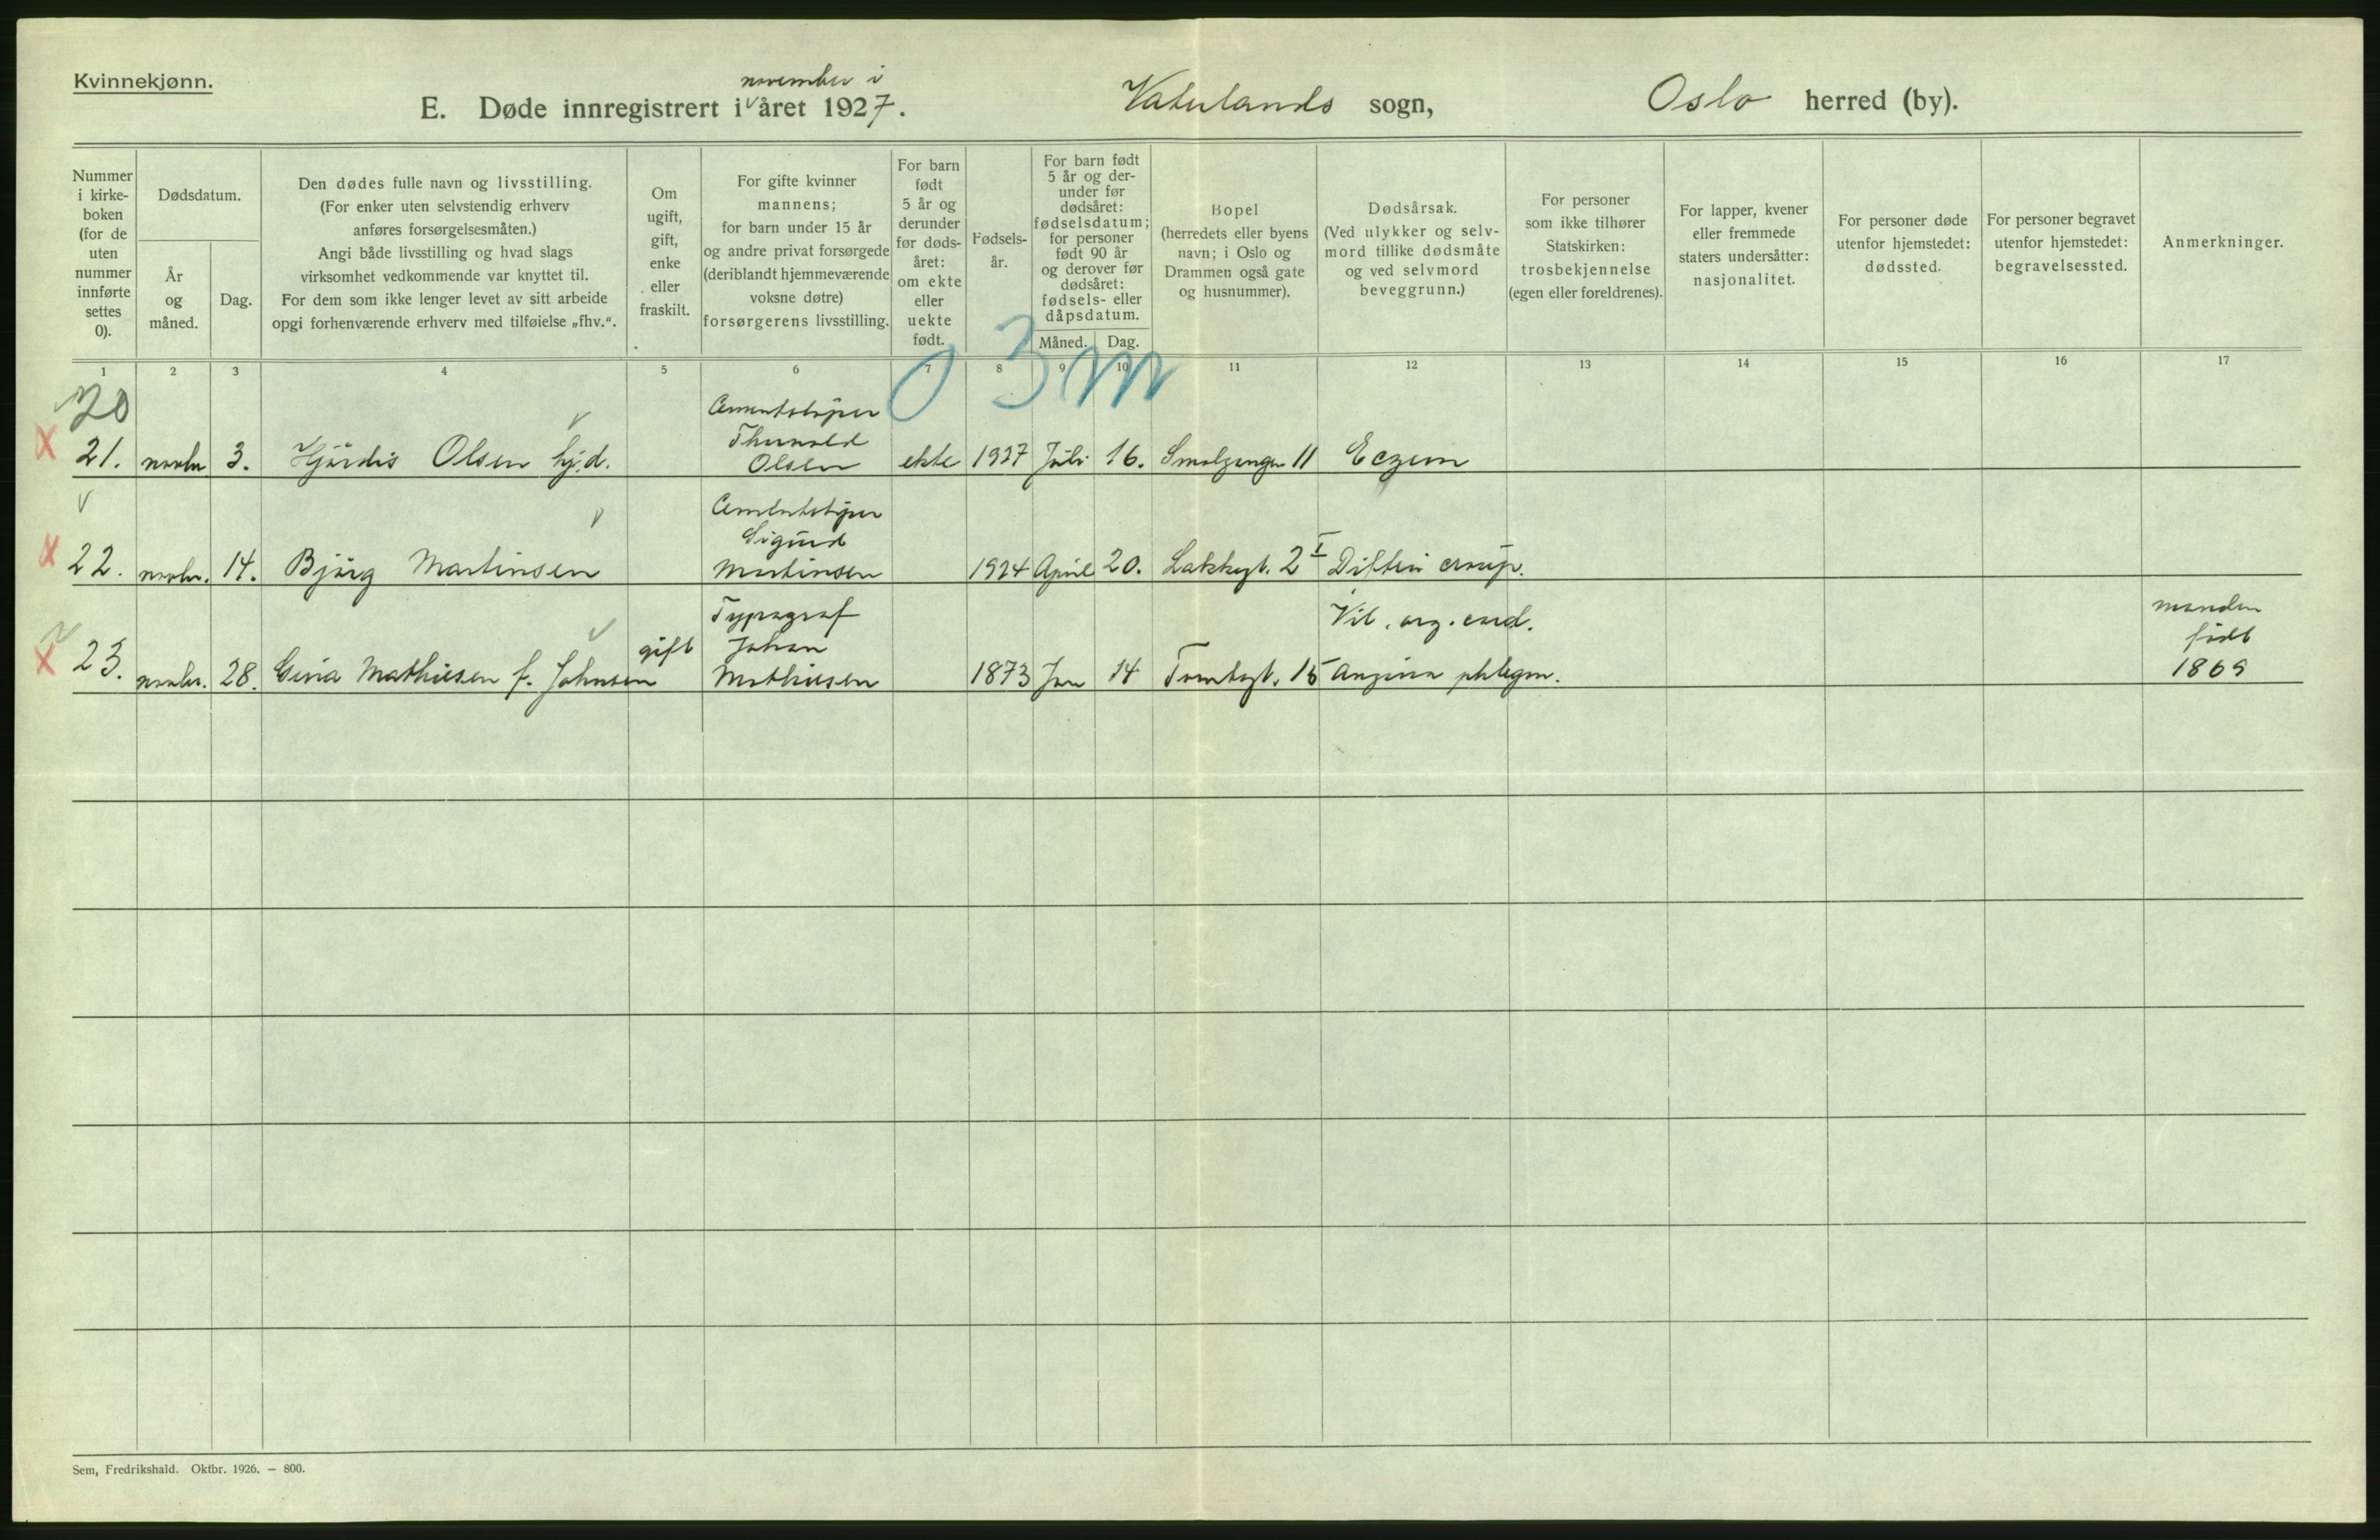 Kvinnekjønn.
november i
E. Døde innregistrert i v året 1927.
Vaterlands sogn,
Oslo herred (by).
Nummer
i kirke-
boken
(for de
uten
nummer
innførte
settes
0).
Dødsdatum.
År
og
måned.
Dag.
Den dødes fulle navn og livsstilling.
(For enker uten selvstendig erhverv
anføres forsørgelsesmåten.)
Angi både livsstilling og hvad slags
virksomhet vedkommende var knyttet til.
For dem som ikke lenger levet av sitt arbeide
opgi forhenværende erhverv med tilføielse „fhv.“.
Om
ugift,
gift,
enke
eller
fraskilt.
For gifte kvinner
mannens;
for barn under 15 år
og andre privat forsørgede
(deriblandt hjemmeværende
voksne døtre)
forsørgerens livsstilling.
For barn
født
5 år og
derunder
før døds-
året:
om ekte
eller
uekte
født.
Fødsels-
år.
For barn født
5 år og der-
under før
dødsåret:
fødselsdatum;
for personer
født 90 år
og derover før
dødsåret:
fødsels- eller
dåpsdatum.
Måned. Dag.
Bopel
(herredets eller byens
navn; i Oslo og
Drammen også gate
og husnummer).
Dødsårsak.
(Ved ulykker og selv-
mord tillike dødsmåte
og ved selvmord
beveggrunn.)
For personer
som ikke tilhører
Statskirken:
trosbekjennelse
(egen eller foreldrenes).
For lapper, kvener
eller fremmede
staters undersåtter:
nasjonalitet.
For personer døde
utenfor hjemstedet:
dødssted.
For personer begravet
utenfor hjemstedet:
begravelsessted.
Anmerkninger.
1 2 3 4 5 6 7 8 9 10 11 12 13 14 15 16 17
0 3 m
20
Cementstøper
Thorvald
21. novbr 3. Hjördis Olsen hj.d. Olsen ekte 1927 Juli 16. Smalgangen 11 Eczem
Cementstøper
Sigurd
22. novbr. 14. Bjørg Martinsen Martinsen 1924 April 20. Lakkegt. 2 I Difteri croup.
Typograf
Vit. org. cord.
manden
gift Johan
født
23. novbr. 28. Gina Mathiesen f. Johnsen Mathiesen 1873 Jan 14 Tomtegt. 15 Angina phlegm. 1869
Sem, Fredrikshald. Oktbr. 1926. — 800.